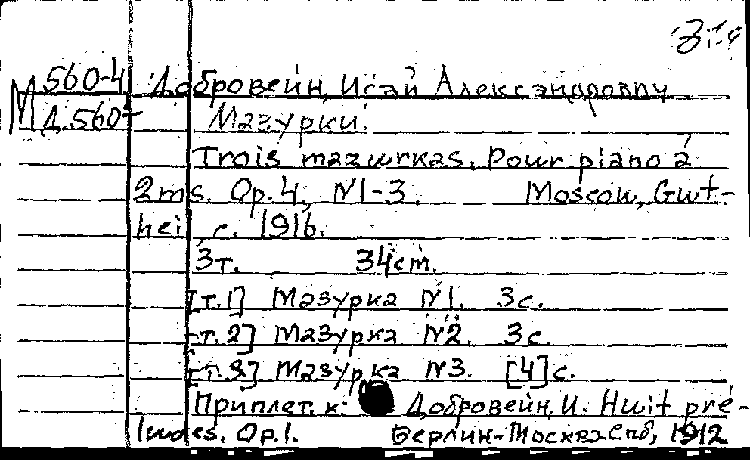 М 560-4 Добровейн, Исай Александрович
Д.560- Мазурки.
Trois mazurkas. Pour piano à
2ms. Op. 4, N1-3. Moscow, Gut-
heil, c. 1916.
3т. 34cm.
[т.1] Мазурка N1. 3с.
[т.2] Мазурка N2. 3с.
[т.3] Мазурка N3. [4]с.
Приплет. к: Добровейн, И. Huit pré-
ludes. Op.1. Берлин-Москва-Спб, 1912